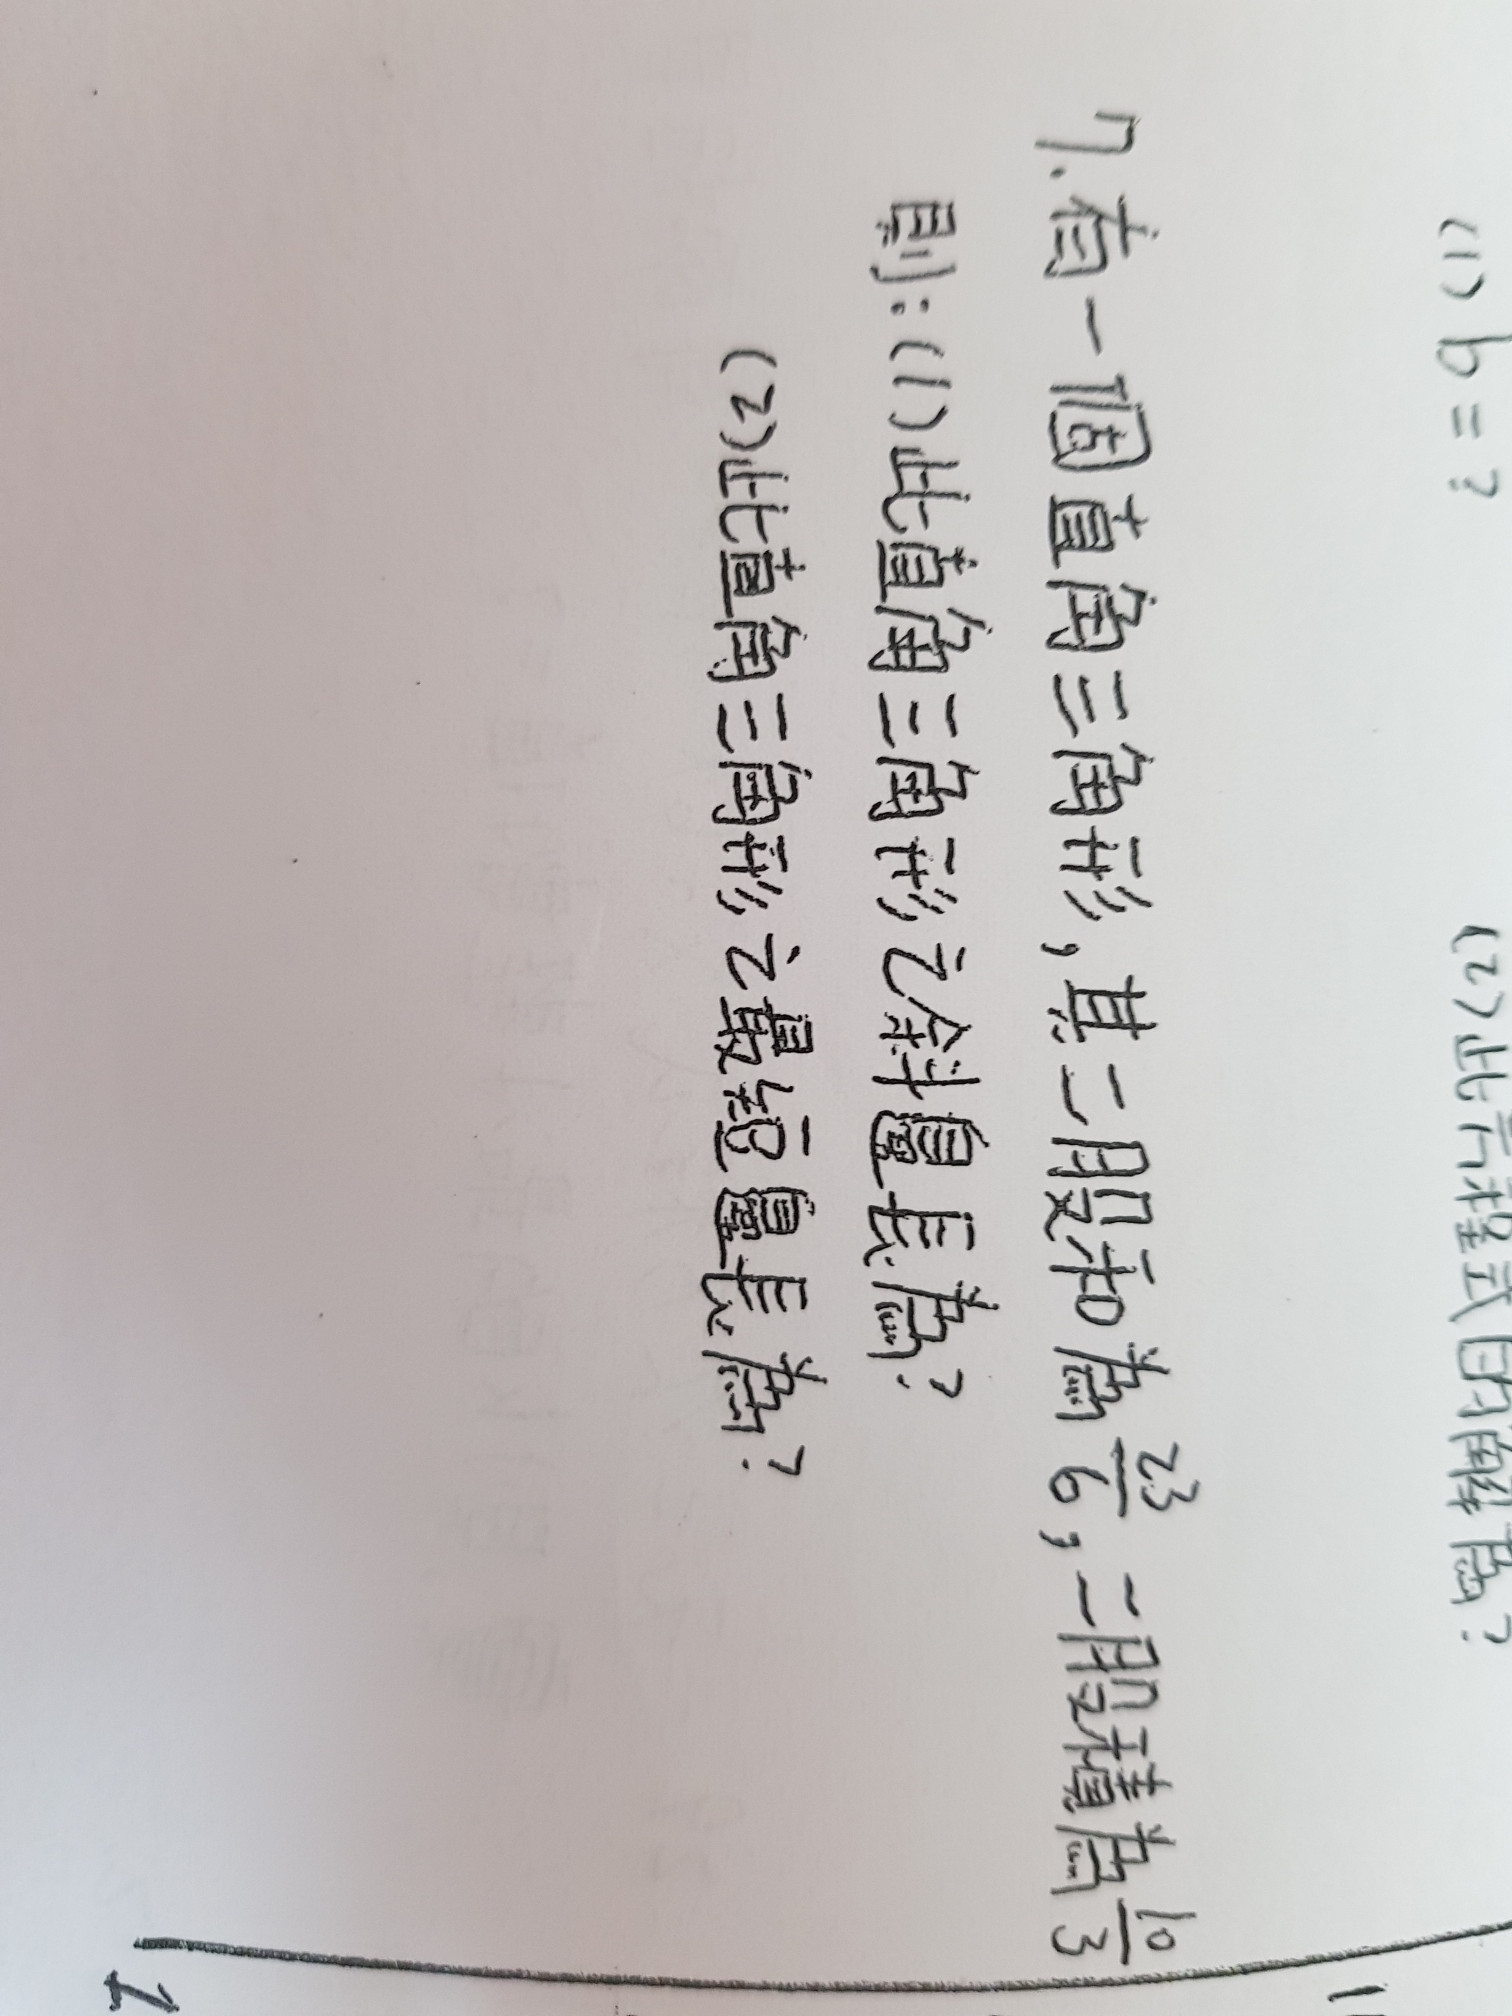 (1) b = ? (2) 此方程式的解為?
7. 有一個直角三角形, 其二股和為 23/6, 二股積為 10/3
則: (1) 此直角三角形之斜邊長為?
(2) 此直角三角形之最短邊長為?